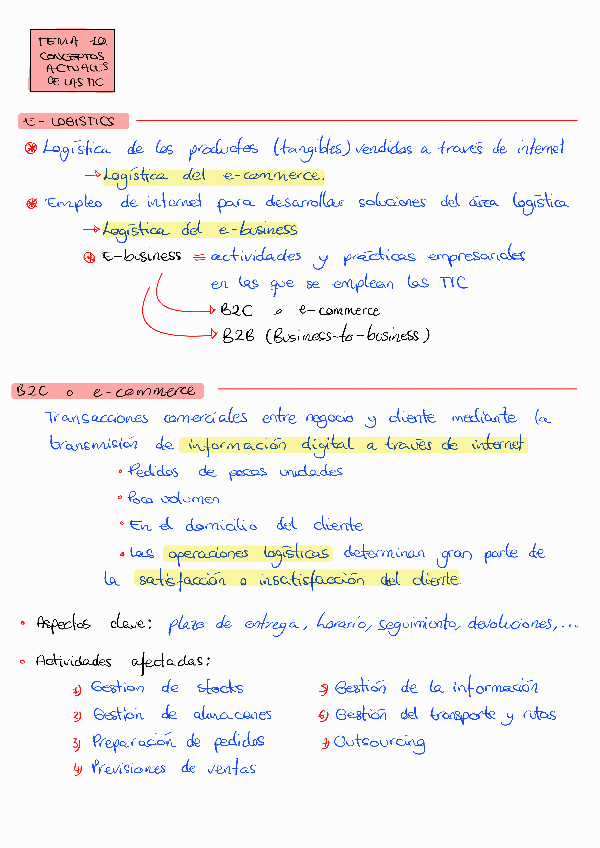 TEMA 10.
CONCEPTOS
ACTUALES
DE LAS TIC
E-LOGISTICS
Logística de los productos (tangibles) vendidos a través de internet
→ Logística del e-commerce.
Empleo de internet para desarrollar soluciones del área logística
→ Logística del e-business
E-business = actividades y prácticas empresariales
en las que se emplean las TIC
B2C o e-commerce
B2B (Business-to-business)
B2C o e-commerce
Transacciones comerciales entre negocio y cliente mediante la
transmisión de información digital a través de internet
• Pedidos de pocas unidades
• Poco volumen
• En el domicilio del cliente
• Las operaciones logísticas determinan gran parte de
la satisfacción o insatisfacción del cliente
• Aspectos clave: plazo de entrega, horario, seguimiento, devoluciones,...
• Actividades afectadas:
1) Gestión de stocks
2) Gestión de almacenes
3) Preparación de pedidos
4) Previsiones de ventas
5) Gestión de la información
6) Gestión del transporte y rutas
7) Outsourcing